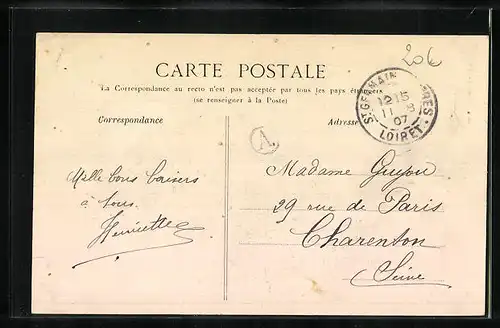 20€
CARTE POSTALE
La Correspondance au recto n'est pas acceptée par tous les pays étrangers
(se renseigner à la Poste)
Correspondance
Adresse
ST GERMAIN
12 15
11 - 8
07
LOIRET
A
Mille bons baisers
à tous.
Henriette
Madame Guyou
29 rue de Paris
Charenton
Seine